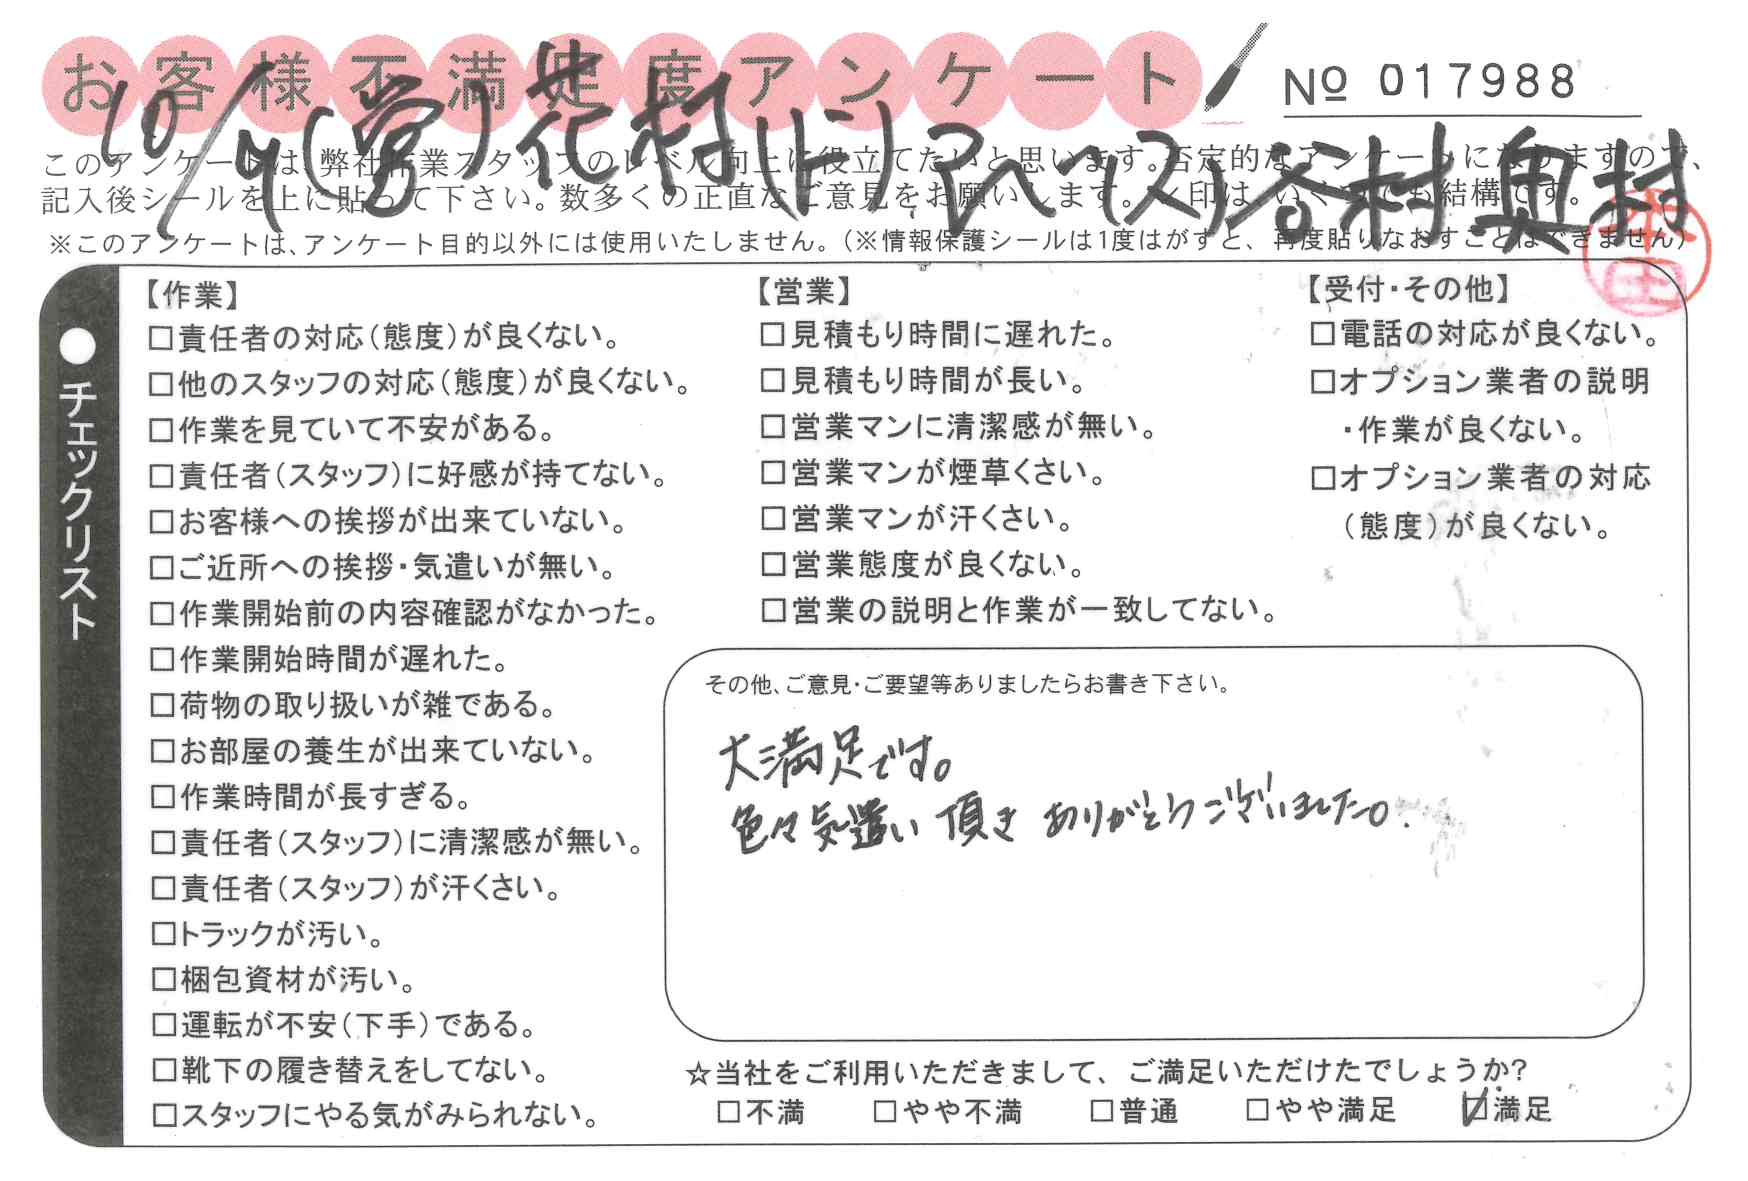 お客様不満足度アンケート
No 017988
10/9(営)花村(ト)アヘ(ス)谷村 奥村
このアンケートは、弊社作業スタッフのレベル向上に役立てたいと思います。否定的なアンケートになりますので、
記入後シールを上に貼って下さい。数多くの正直なご意見をお願いします。✓印は、いくつでも結構です。
※このアンケートは、アンケート目的以外には使用いたしません。(※情報保護シールは1度はがすと、再度貼りなおすことはできません)
●チェックリスト
【作業】
□責任者の対応(態度)が良くない。
□他のスタッフの対応(態度)が良くない。
□作業を見ていて不安がある。
□責任者(スタッフ)に好感が持てない。
□お客様への挨拶が出来ていない。
□ご近所への挨拶・気遣いが無い。
□作業開始前の内容確認がなかった。
□作業開始時間が遅れた。
□荷物の取り扱いが雑である。
□お部屋の養生が出来ていない。
□作業時間が長すぎる。
□責任者(スタッフ)に清潔感が無い。
□責任者(スタッフ)が汗くさい。
□トラックが汚い。
□梱包資材が汚い。
□運転が不安(下手)である。
□靴下の履き替えをしてない。
□スタッフにやる気がみられない。
【営業】
□見積もり時間に遅れた。
□見積もり時間が長い。
□営業マンに清潔感が無い。
□営業マンが煙草くさい。
□営業マンが汗くさい。
□営業態度が良くない。
□営業の説明と作業が一致してない。
【受付・その他】
□電話の対応が良くない。
□オプション業者の説明
・作業が良くない。
□オプション業者の対応
(態度)が良くない。
その他、ご意見・ご要望等ありましたらお書き下さい。
大満足です。
色々気遣い頂き ありがとうございました。
☆当社をご利用いただきまして、ご満足いただけたでしょうか?
□不満 □やや不満 □普通 □やや満足 ☑満足